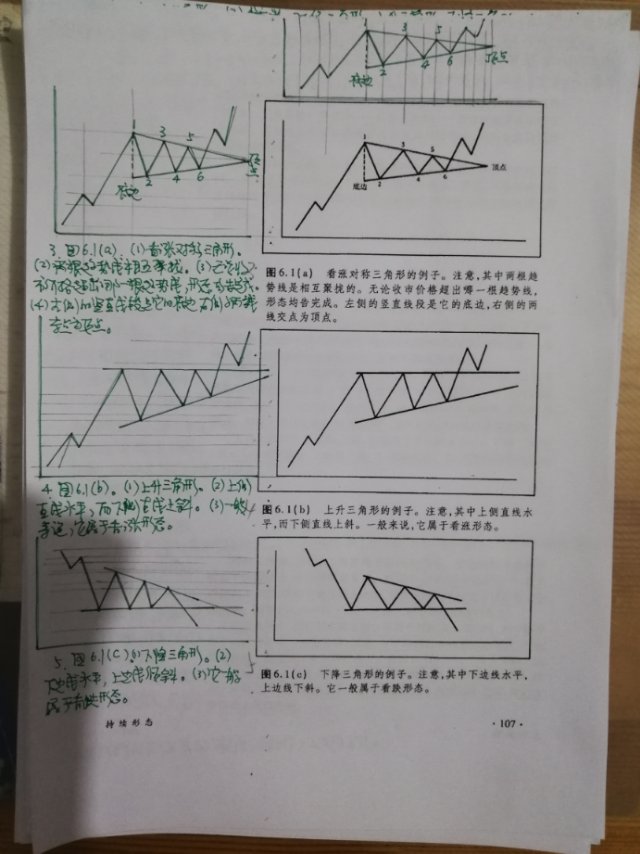 1
3
5
2
4
6
底边
顶点
1
3
5
2
4
6
底边
顶点
1
3
5
2
4
6
底边
顶点
3. 图6.1(a). (1)看涨对称三角形.
(2)两根趋势线相互聚拢. (3)无论收
市价格超出哪一根趋势线,形态均告完成.
(4)左侧的竖直线段是它的底边,右侧的两线
交点为顶点。
图6.1(a) 看涨对称三角形的例子。注意,其中两根趋
势线是相互聚拢的。无论收市价格超出哪一根趋势线,
形态均告完成。左侧的竖直线段是它的底边,右侧的两
线交点为顶点。
4. 图6.1(b)。(1)上升三角形。(2)上侧
直线水平,而下侧直线上斜。(3)一般
来说,它属于看涨形态。
图6.1(b) 上升三角形的例子。注意,其中上侧直线水
平,而下侧直线上斜。一般来说,它属于看涨形态。
5. 图6.1(C).(1)下降三角形。(2)
下边线水平,上边线下斜。(3)它一般
属于看跌形态。
图6.1(c) 下降三角形的例子。注意,其中下边线水平,
上边线下斜。它一般属于看跌形态。
持续形态
·107·